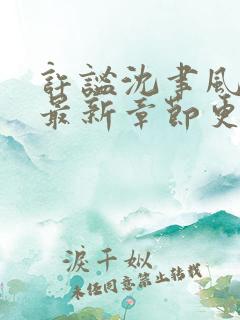 許謐沈書風
最新章節更
淚千姒
未经同意禁止转载